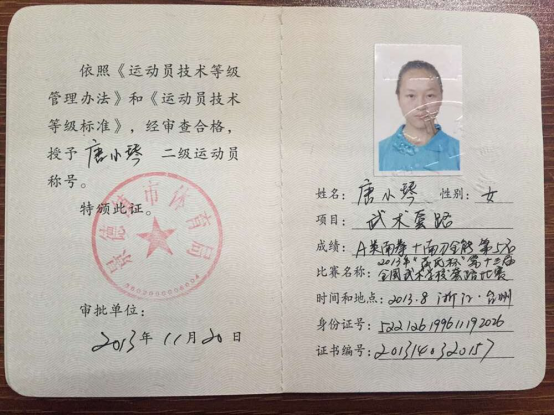 依照《运动员技术等级
管理办法》和《运动员技术
等级标准》，经审查合格，
授予 唐小琴 二级运动员
称号。
特颁此证。
景德镇市体育局
审批单位：
2013年 11月 20日
姓名：唐小琴 性别：女
项目：武术套路
成绩：A类南拳+南刀全能 第5名
2013年"民民杯"第十三届
比赛名称：全国武术学校套路比赛
时间和地点：2013.8 浙江·台州
身份证号：522126199611192026
证书编号：2013140320157